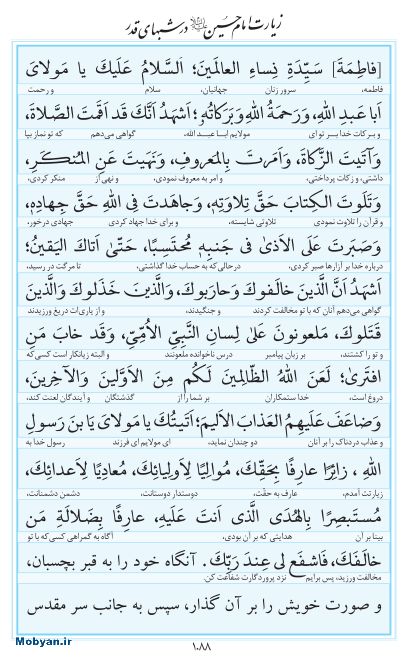 زیارت امام حسین علیه‌السلام در شبهای قدر
[فاطِمَةَ] سَيِّدَةِ نِساءِ العالَمينَ؛ اَلسَّلامُ عَلَيكَ يا مَولايَ
فاطمه، سرور زنان جهانیان، سلام و رحمت
اَبا عَبدِ اللهِ، وَرَحمَةُ اللهِ وَبَرَكاتُهُ؛ اَشهَدُ اَنَّكَ قَد اَقَمتَ الصَّلاةَ،
و برکات خدا بر تو ای مولایم ابا عبد الله، گواهی می‌دهم که تو نماز بپا
وَآتَيتَ الزَّكاةَ، وَاَمَرتَ بِالمَعروفِ، وَنَهَيتَ عَنِ المُنكَرِ،
داشتی، و زکات پرداختی، و امر به معروف نمودی، و نهی از منکر کردی،
وَتَلَوتَ الكِتابَ حَقَّ تِلاوَتِهِ، وَجاهَدتَ فِي اللهِ حَقَّ جِهادِهِ،
و قرآن را تلاوت نمودی تلاوتی شایسته، و برای خدا جهاد کردی جهادی درخور،
وَصَبَرتَ عَلَى الاَذىٰ في جَنبِهِ مُحتَسِبًا، حَتّىٰ اَتاكَ اليَقينُ؛
درباره خدا بر آزارها صبر کردی، درحالی‌که به حساب خدا گذاشتی، تا مرگت در رسید،
اَشهَدُ اَنَّ الَّذينَ خالَفوكَ وَحارَبوكَ، وَالَّذينَ خَذَلوكَ وَالَّذينَ
گواهی می‌دهم آنان که با تو مخالفت کردند و جنگیدند، و از یاری‌ات دریغ ورزیدند
قَتَلوكَ، مَلعونونَ عَلىٰ لِسانِ النَّبِيِّ الاُمِّيِّ، وَقَد خابَ مَنِ
و تو را کشتند، بر زبان پیامبر درس ناخوانده ملعونند و البته زیانکار است کسی که
افتَرىٰ؛ لَعَنَ اللهُ الظّالِمينَ لَكُم مِنَ الاَوَّلينَ وَالآخِرينَ،
دروغ بست، خدا ستمکاران بر شما را از گذشتگان و آیندگان لعنت کند،
وَضاعَفَ عَلَيهِمُ العَذابَ الاَليمَ؛ اَتَيتُكَ يا مَولايَ يَا بنَ رَسولِ
و عذاب دردناک را بر آنان دو چندان نماید، ای مولایم ای فرزند رسول خدا به
اللهِ، زائِرًا عارِفًا بِحَقِّكَ، مُوالِيًا لِاَولِيائِكَ، مُعادِيًا لِاَعدائِكَ،
زیارتت آمدم، عارف به حقّت، دوستدار دوستانت، دشمن دشمنانت،
مُستَبصِرًا بِالهُدَى الَّذي اَنتَ عَلَيهِ، عارِفًا بِضَلالَةِ مَن
بینا بر آن هدایتی که بر آن بودی، آگاه به گمراهی کسی که با تو
خالَفَكَ، فَاشفَع لي عِندَ رَبِّكَ. آنگاه خود را به قبر بچسبان،
مخالفت ورزید، پس برایم نزد پروردگارت شفاعت کن.
و صورت خویش را بر آن گذار، سپس به جانب سر مقدس
۱۰۸۸
Mobyan.ir